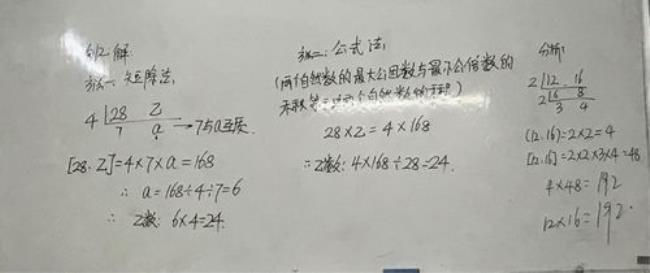 例2 解:
方法一: 短除法,
4 28 Z
7 a → 7与a互质.
[28, Z]=4×7×a=168
∴ a=168÷4÷7=6
∴ Z数: 6×4=24.
方法二: 公式法,
(两个自然数的最大公因数与最小公倍数的
乘积等于这两个自然数的乘积)
28×Z=4×168
∴Z数: 4×168÷28=24.
分析:
2 12 16
2 6 8
3 4
(12,16)=2×2=4
[12,16]=2×2×3×4=48
4×48=192
12×16=192.